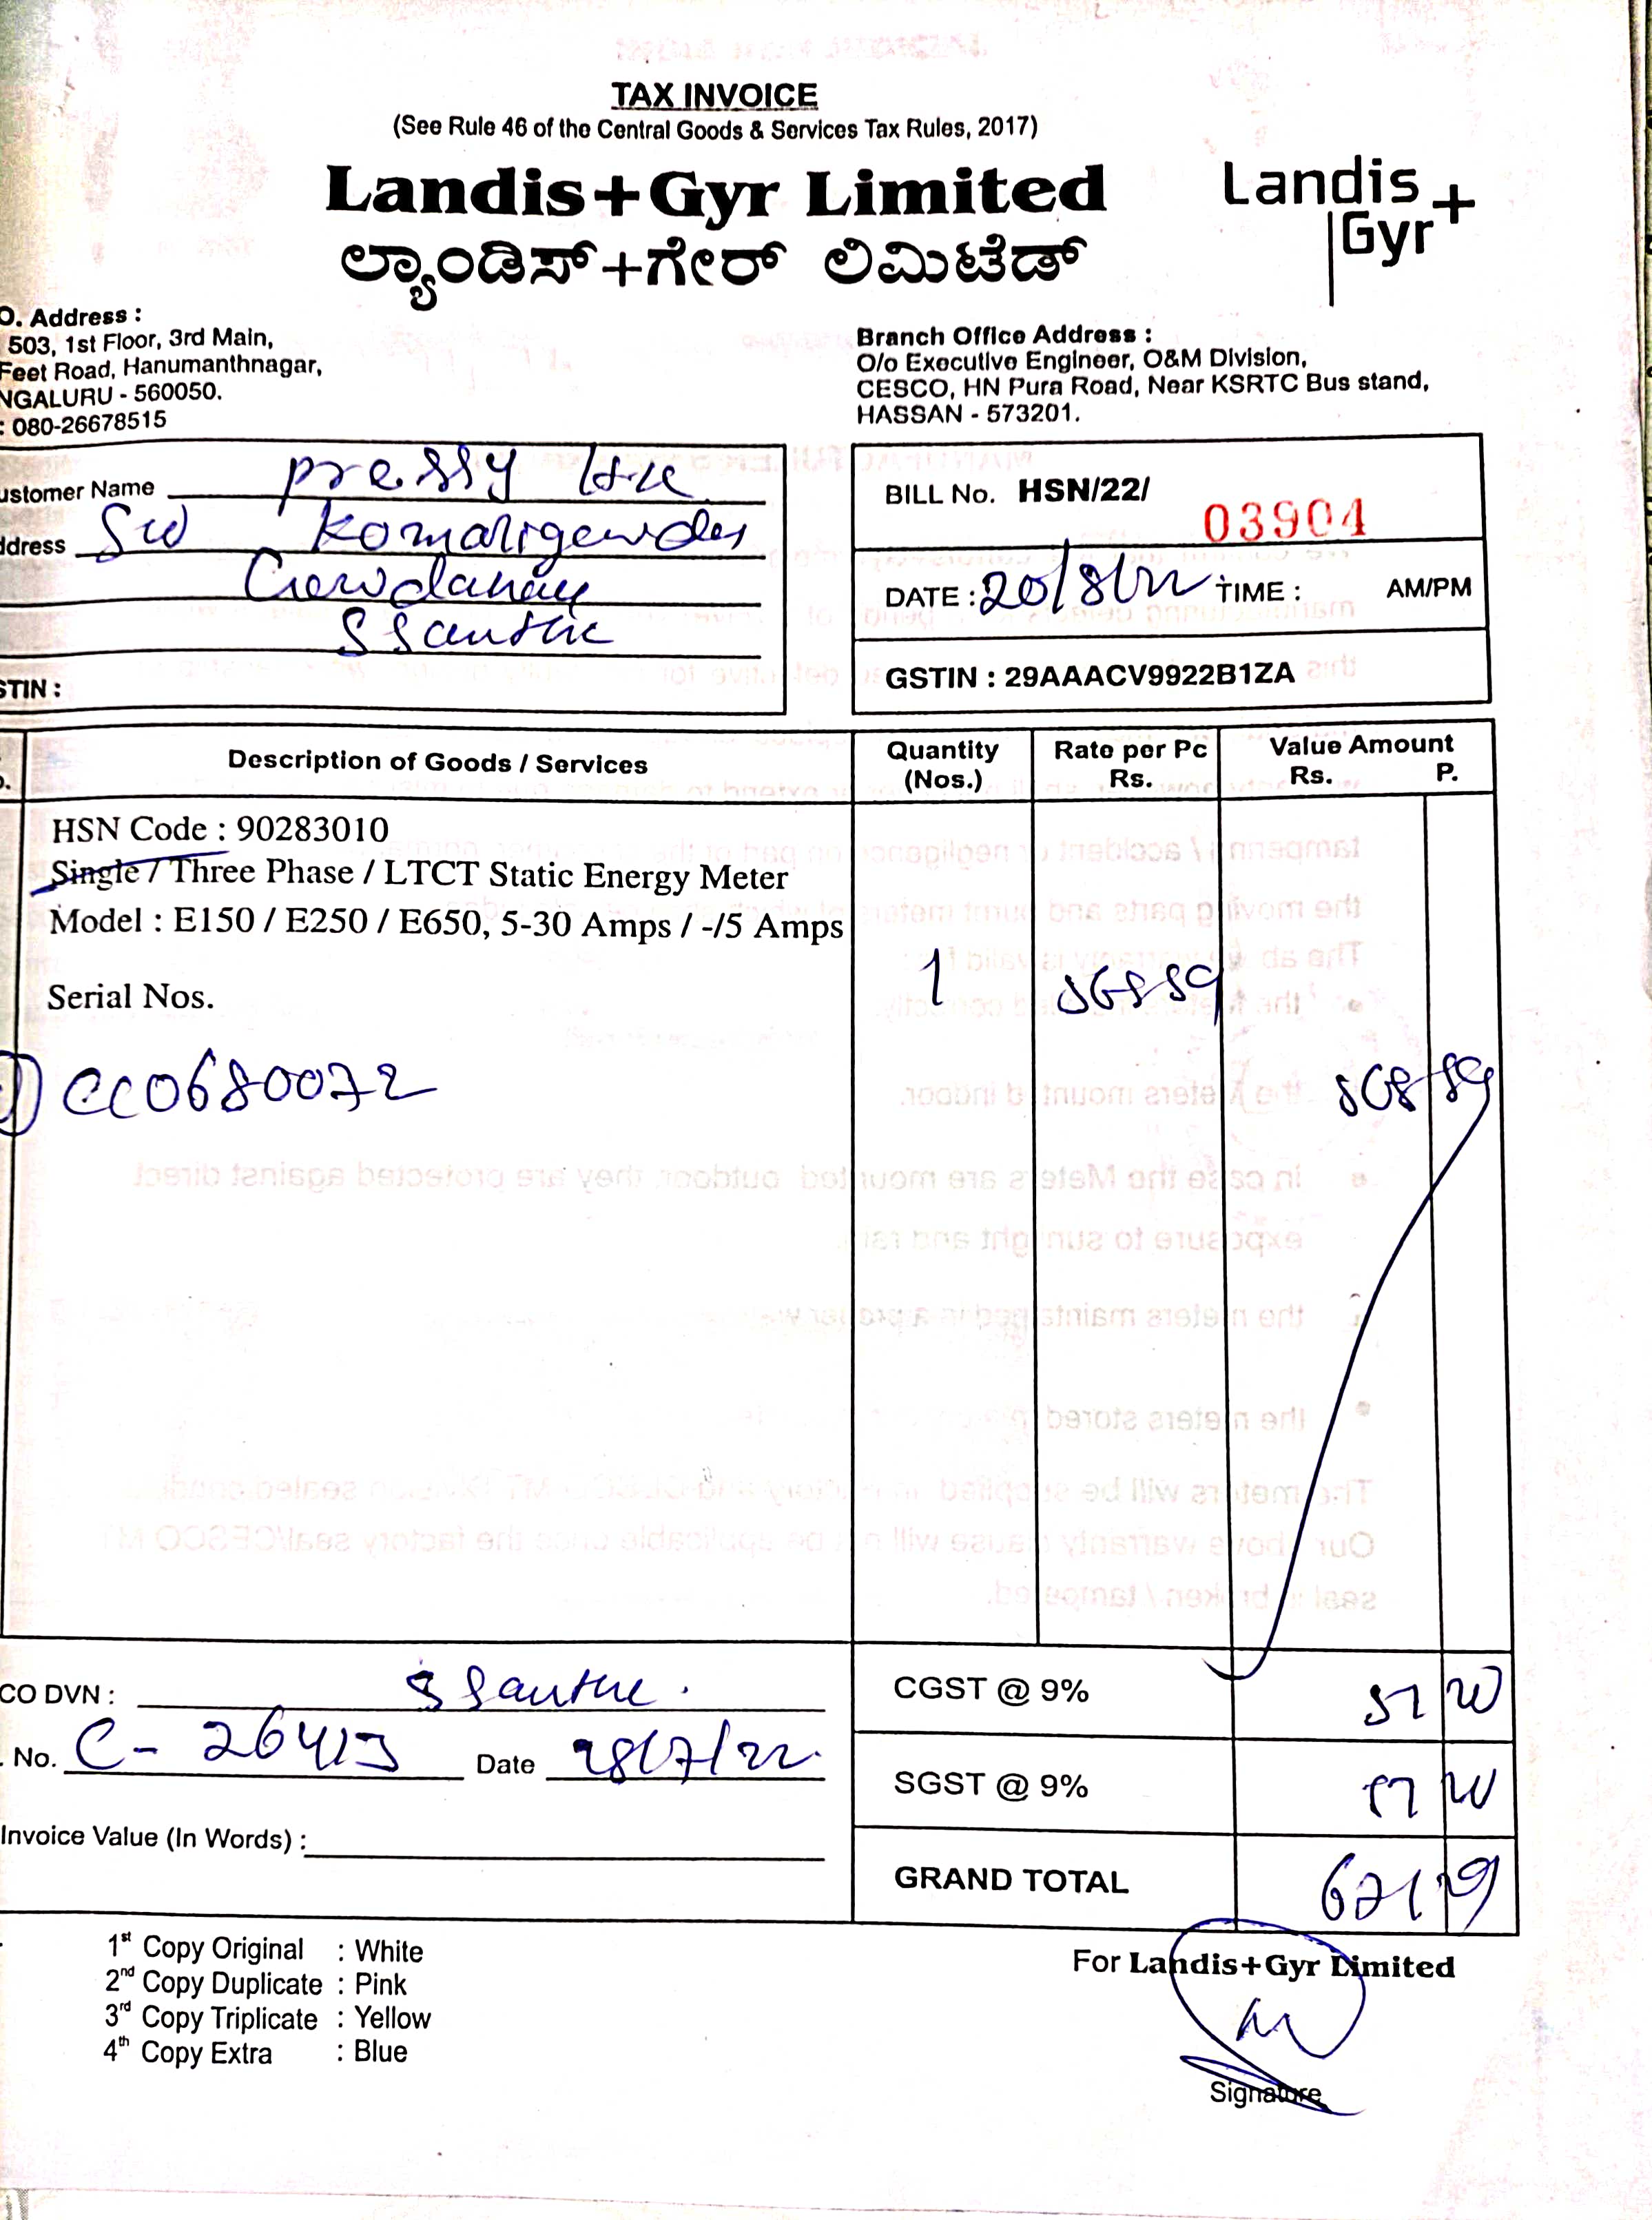 TAX INVOICE
(See Rule 46 of the Central Goods & Services Tax Rules, 2017)
Landis+Gyr Limited
ಲ್ಯಾಂಡಿಸ್+ಗೇರ್ ಲಿಮಿಟೆಡ್
Landis+
Gyr
O. Address :
503, 1st Floor, 3rd Main,
Feet Road, Hanumanthnagar,
NGALURU - 560050.
: 080-26678515
Branch Office Address :
O/o Executive Engineer, O&M Division,
CESCO, HN Pura Road, Near KSRTC Bus stand,
HASSAN - 573201.
ustomer Name
ddress
STIN :
BILL No. HSN/22/ 03904
DATE : 20/8/22 TIME : AM/PM
GSTIN : 29AAACV9922B1ZA
Description of Goods / Services
Quantity (Nos.)
Rate per Pc Rs.
Value Amount Rs. P.
HSN Code : 90283010
Single / Three Phase / LTCT Static Energy Meter
Model : E150 / E250 / E650, 5-30 Amps / -/5 Amps
Serial Nos.
1
CC0680072
CO DVN : SSanthe.
. No. C- 26413 Date 28/7/22.
Invoice Value (In Words) :
CGST @ 9%
SGST @ 9%
GRAND TOTAL
1st Copy Original : White
2nd Copy Duplicate : Pink
3rd Copy Triplicate : Yellow
4th Copy Extra : Blue
For Landis+Gyr Limited
Signature